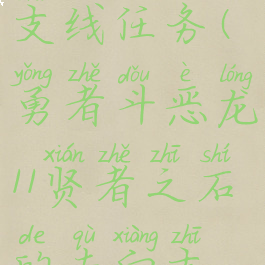 支线任务(
yǒng zhě dǒu è lóng
勇者斗恶龙
xián zhě zhī shí
11贤者之石
de qù xiàng zhī
的去向支